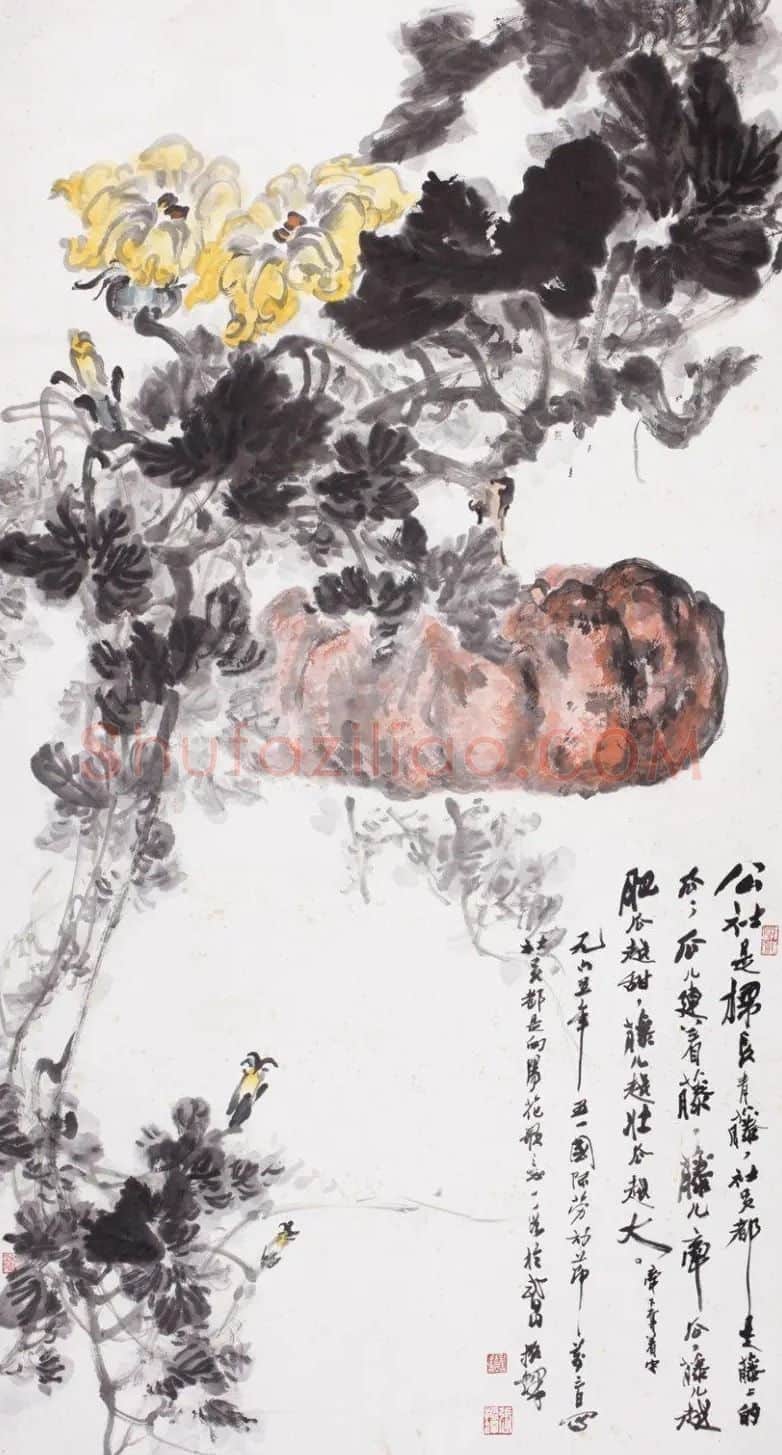 公社是棵長青藤,社员都是藤上的
瓜,瓜儿連着藤,藤儿牵瓜,藤儿越
肥瓜越甜,藤儿越壮瓜越大。牵下夺着字
六五年五一國际劳动节
社员都是向陽花歌意於武昌
Shufaziliao.COM